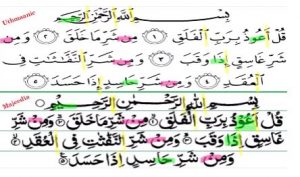 Uthmaanic
بِسْمِ اللَّهِ الرَّحْمَٰنِ الرَّحِيمِ
قُلْ أَعُوذُ بِرَبِّ الْفَلَقِ ١ مِن شَرِّ مَا خَلَقَ ٢ وَمِن
شَرِّ غَاسِقٍ إِذَا وَقَبَ ٣ وَمِن شَرِّ النَّفَّاثَاتِ فِي
الْعُقَدِ ٤ وَمِن شَرِّ حَاسِدٍ إِذَا حَسَدَ ٥
Majeedia
بِسْمِ اللهِ الرَّحْمٰنِ الرَّحِيْمِ
قُلْ اَعُوْذُ بِرَبِّ الْفَلَقِ ۙ مِنْ شَرِّ مَا خَلَقَ ۙ وَمِنْ شَرِّ
غَاسِقٍ اِذَا وَقَبَ ۙ وَمِنْ شَرِّ النَّفّٰثٰتِ فِى الْعُقَدِ ۙ
وَمِنْ شَرِّ حَاسِدٍ اِذَا حَسَدَ